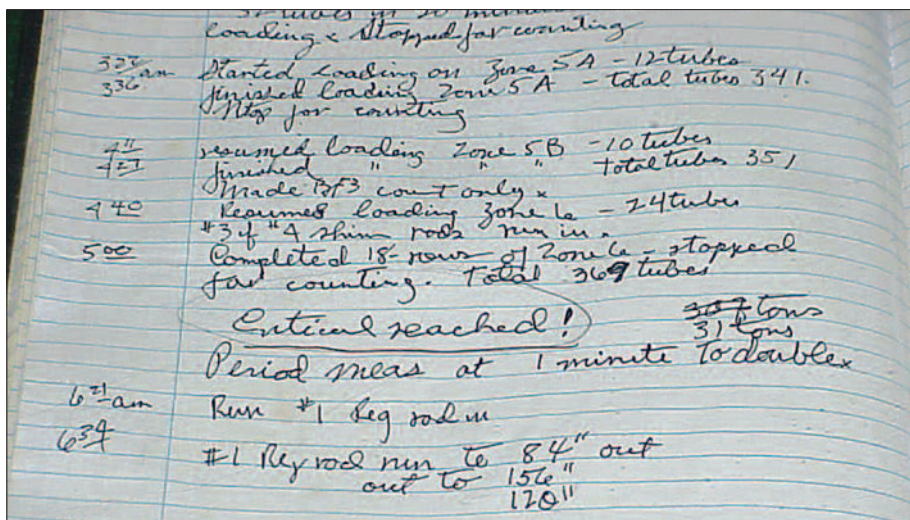 loading x stopped for counting
3 27 am Started loading on Zone 5A - 12 tubes
3 36 finished loading Zone 5A - total tubes 341.
Stop for counting
4 11 resumed loading Zone 5B - 10 tubes
4 27 finished " " " Total tubes 351
Made BF3 count only x
4 40 Resumed loading Zone 6 - 24 tubes
#3 & #4 shim rods run in.
5 00 Completed 18-rows of Zone 6 - stopped
for counting. Total 369 tubes
Critical reached! tons
31 tons
Period meas at 1 minute To double x
6 21 am Run #1 Reg rod in
6 34
#1 Reg rod run to 84" out
out to 156"
120"